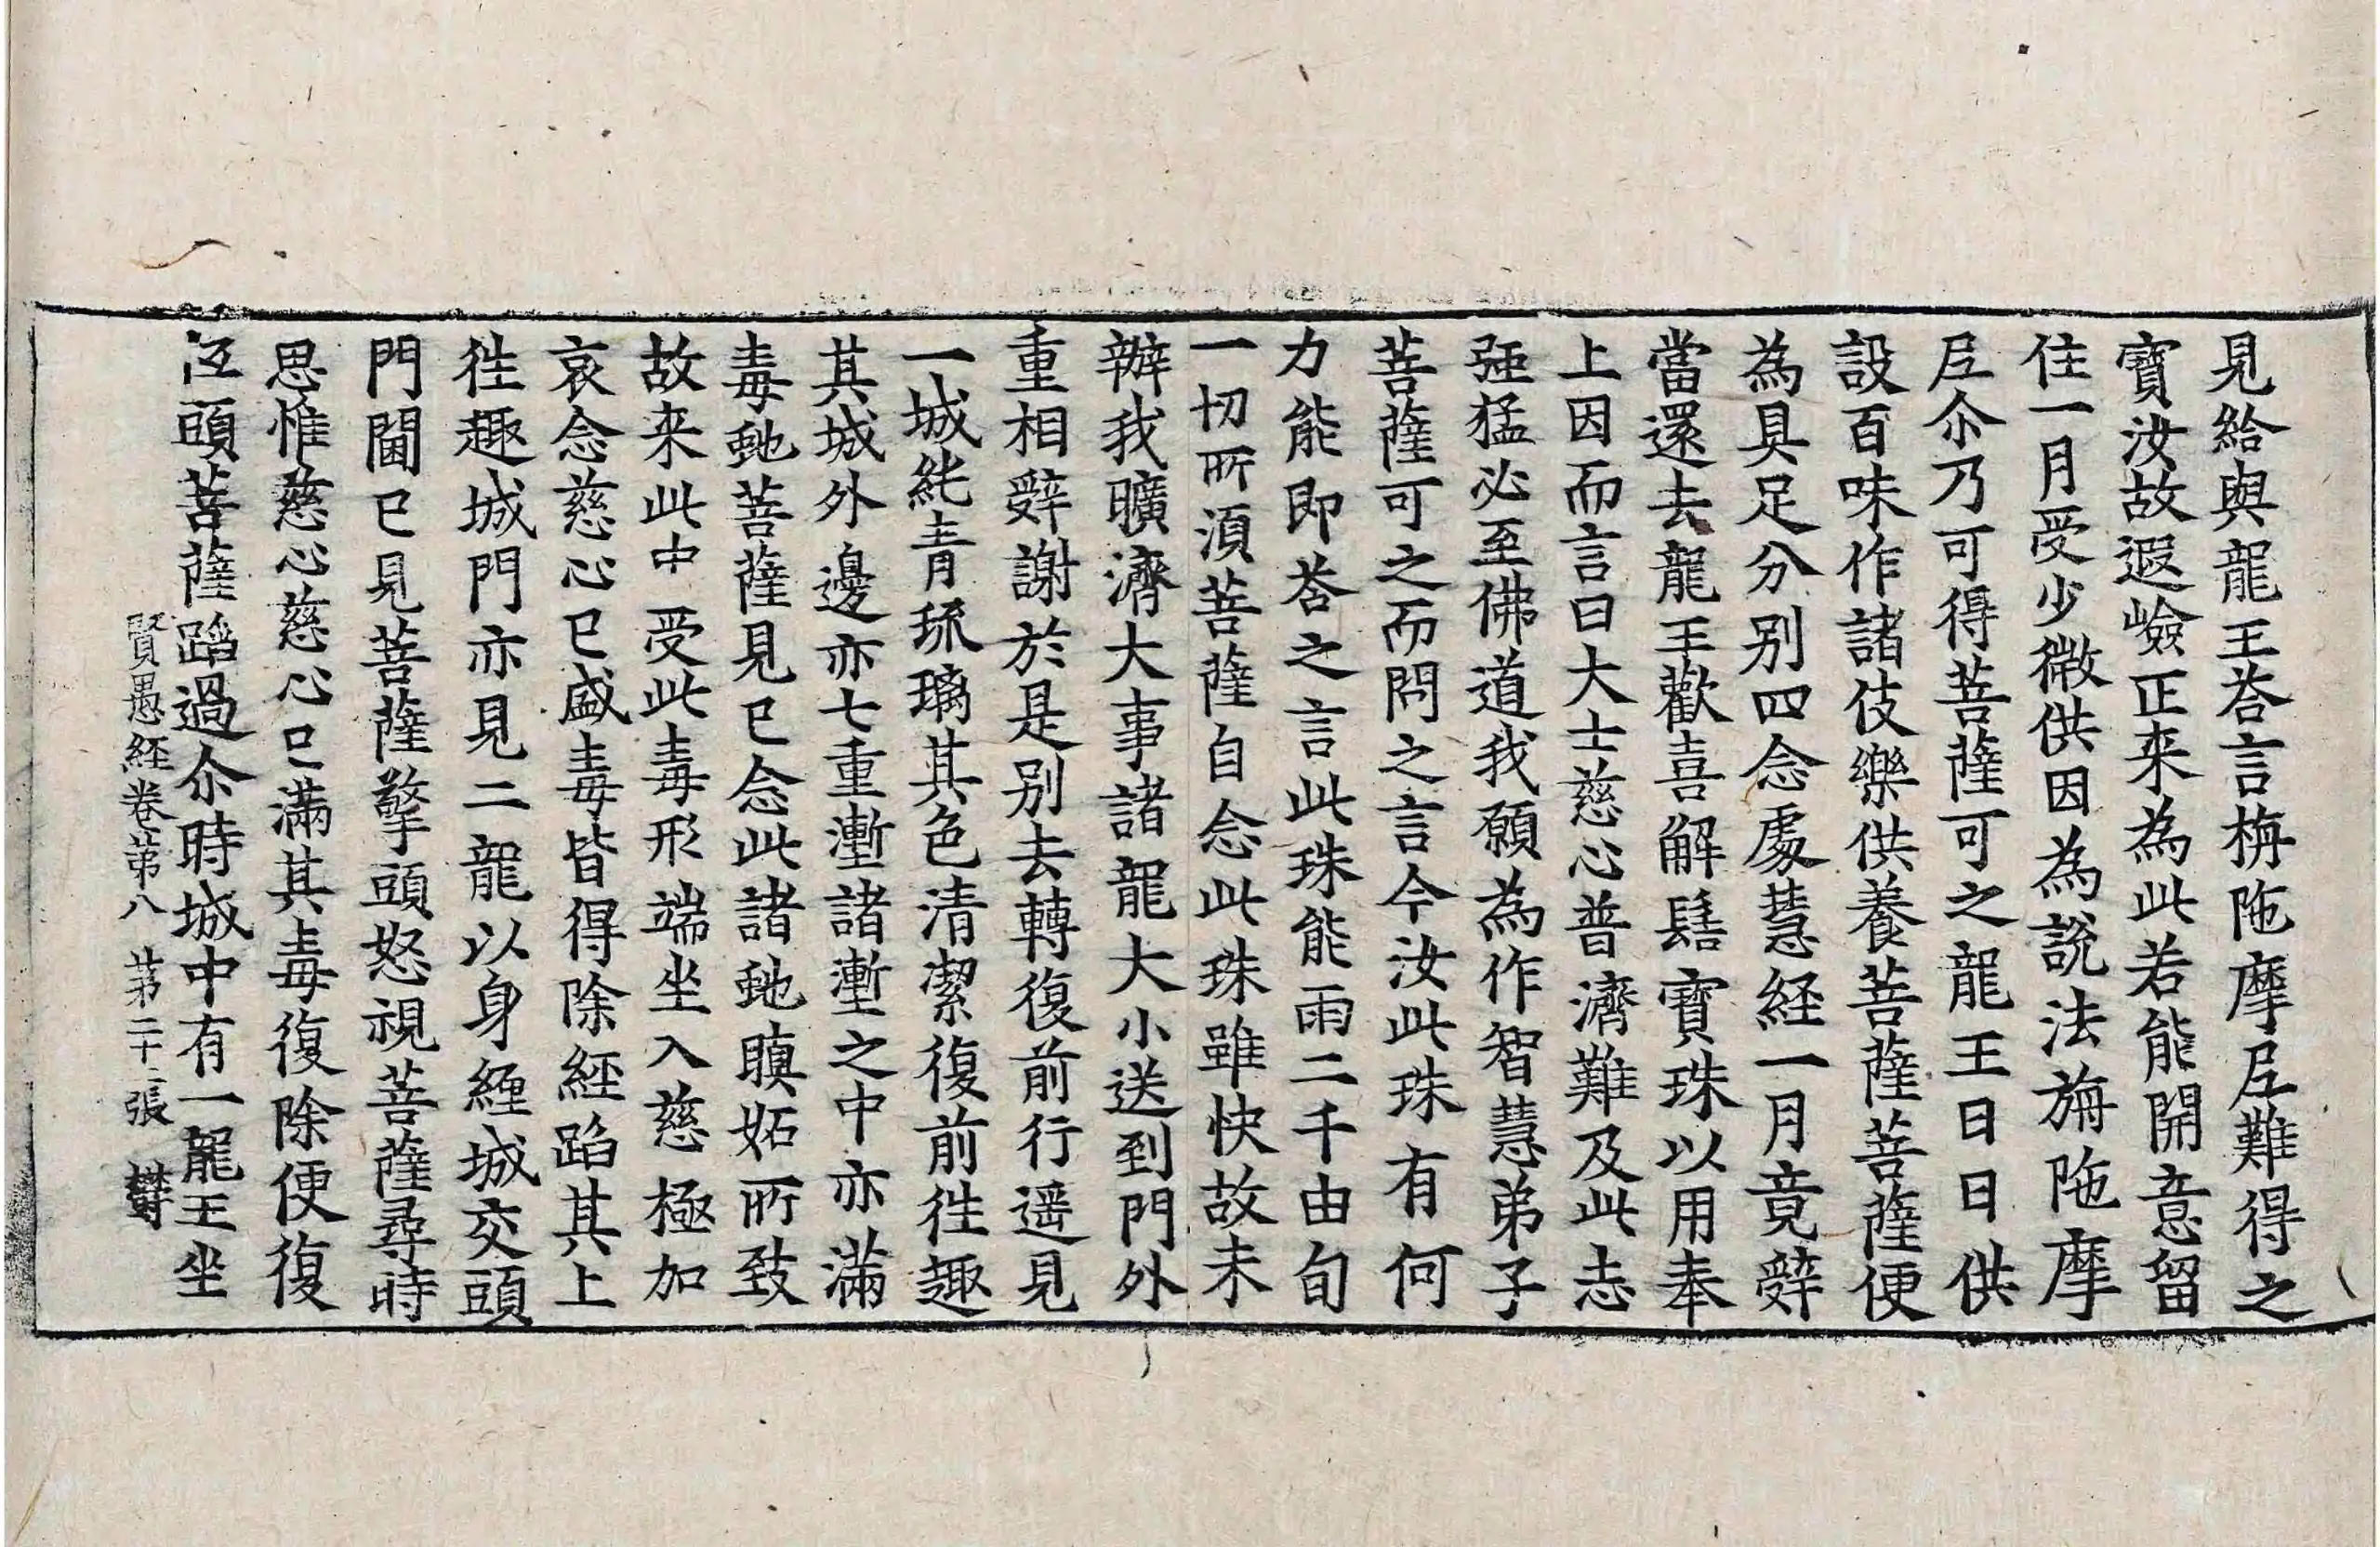 見給與龍王荅言栴陁摩𡰱難得之
寶汝故遐嶮正来為此若能開意留
住一月受少微供因為說法旃陁摩
𡰱尒乃可得菩薩可之龍王日日供
設百味作諸伎樂供養菩薩菩薩便
為具足分别四念處慧経一月竟辤
當還去龍王歡喜解髻寶珠以用奉
上因而言曰大士慈心普濟難及此志
強猛必至佛道我願為作智慧弟子
菩薩可之而問之言今汝此珠有何
力能即荅之言此珠能雨二千由旬
一切所湏菩薩自念此珠雖快故未
辦我曠濟大事諸龍大小送到門外
重相辤謝於是别去轉復前行遥見
一城純青琉璃其色清潔復前徃趣
其城外邊亦七重壍諸壍之中亦滿
毒虵菩薩見已念此諸虵瞋妬所致
故来此中受此毒形端坐入慈極加
哀念慈心已盛毒皆得除經蹈其上
徃趣城門亦見二龍以身繞城交頭
門閫已見菩薩擎頭怒視菩薩尋時
思惟慈心慈心已滿其毒復除便復
低頭菩薩蹈過尒時城中有一龍王坐
賢愚経卷苐八 苐二十二張